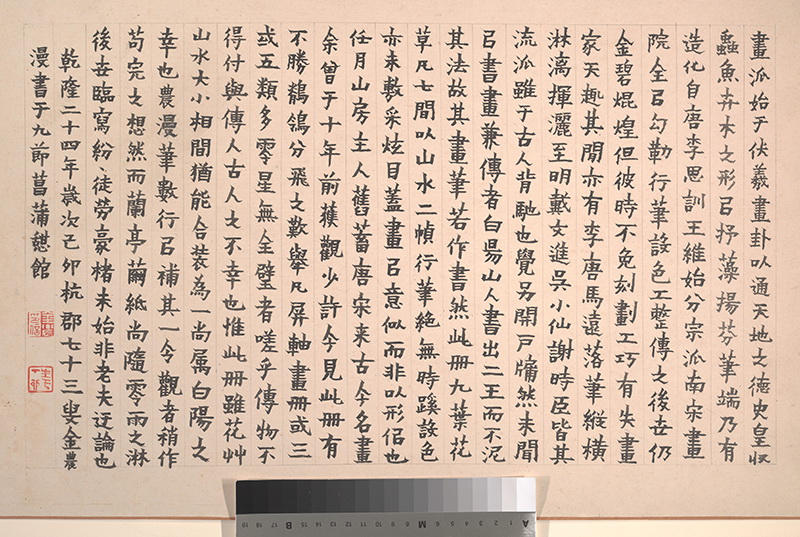 畫派始于伏羲畫卦以通天地之德史皇収
蟲魚卉木之形㠯抒藻揚芬筆端乃有
造化自唐李思訓王維始分宗派南宋畫
院全㠯勾勒行筆設色工整傳之後世仍
金碧焜煌但彼時不免刻劃工巧有失畫
家天趣其閒亦有李唐馬遠落筆縱橫
淋漓揮灑至明戴文進吳小仙謝時臣皆其
流派雖于古人背馳也覺另開戸牖然未聞
㠯書畫兼傳者白昜山人書出二王而不泥
其法故其畫筆若作書然此冊九葉花
草凡七間以山水二幀行筆絕無時蹊設色
亦未敷采炫目蓋畫㠯意似而非以形佀也
任月山房主人舊蓄唐宋来古今名畫
余曾于十年前獲觀少許今見此冊有
不勝鶺鴒分飛之歎舉凡屏軸畫冊或三
或五類多零星無全璧者嗟乎傳物不
得付與傳人古人之不幸也惟此冊雖花艸
山水大小相間猶能合裝為一尚属白陽之
幸也農漫筆數行㠯補其一令觀者稍作
苟完之想然而蘭亭繭紙尚隨零雨之淋
後世臨寫紛〻徒勞豪楮未始非老夫迂論也
乾隆二十四年歲次己夘杭郡七十三叟金農
漫書于九節菖蒲憇館